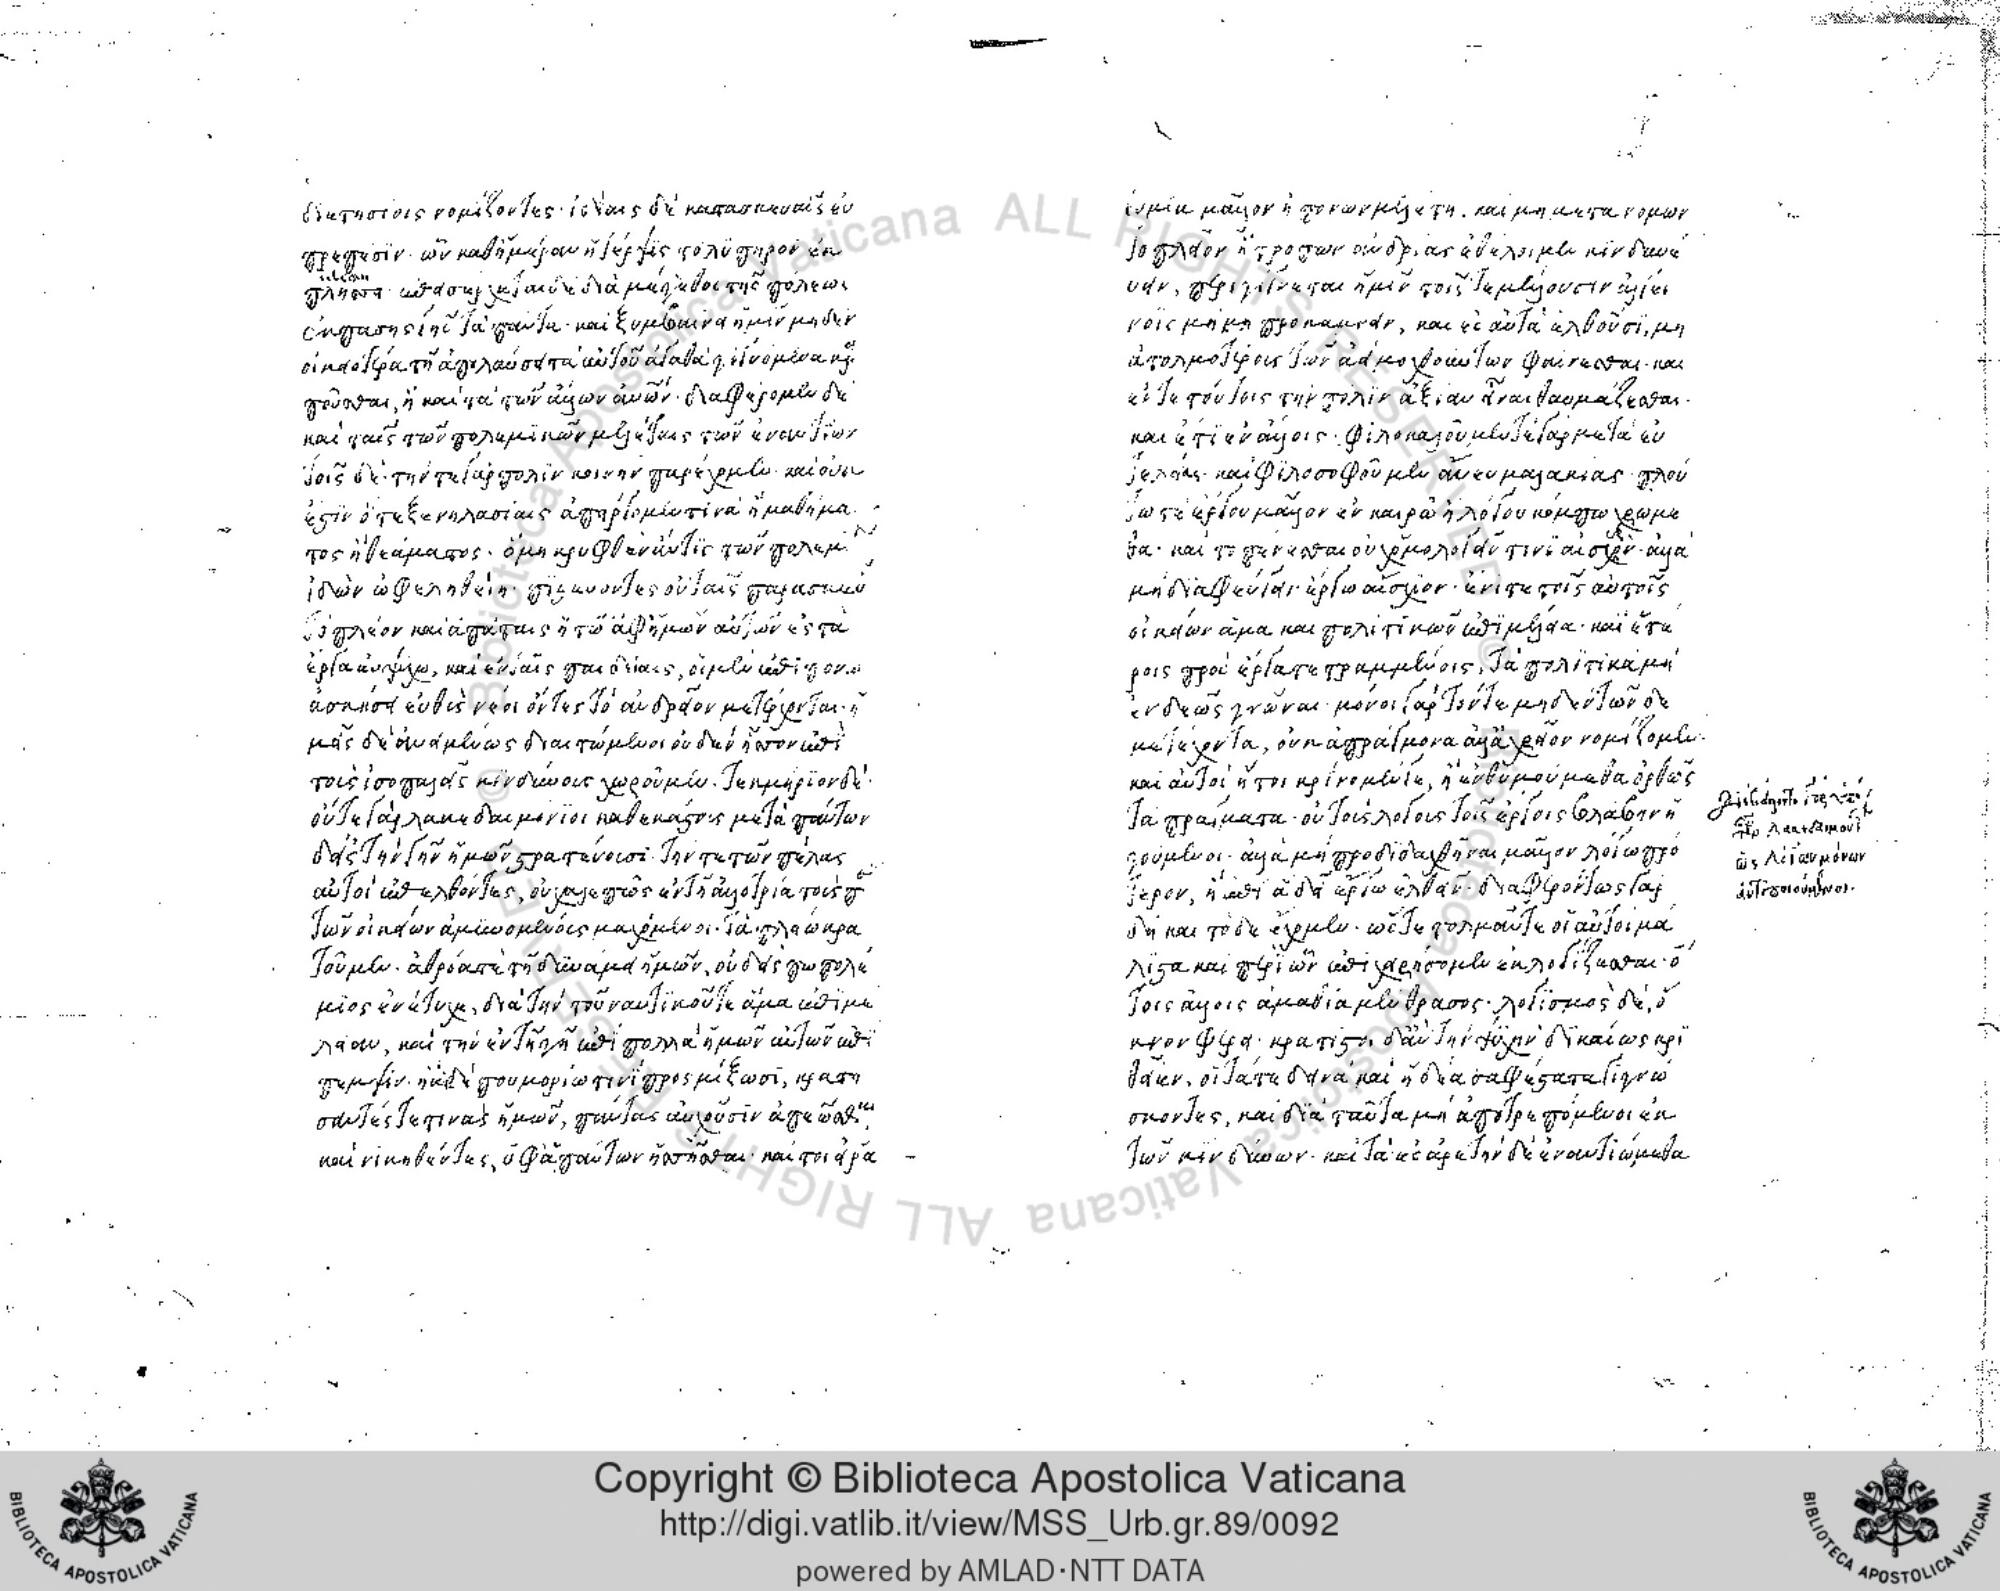 διετησίοις νομίζοντες· ἰδίαις δὲ κατασκευαῖς εὐ
πρεπέσιν· ὧν καθημέραν ἡ τέρψις τὸ λυπηρὸν ἐκ
πλήσσει· ἐπεσέρχεται δὲ διὰ μέγεθος τῆς πόλεως
ἐκ πάσης γῆς τὰ πάντα· καὶ ξυμβαίνει ἡμῖν μηδὲν
οἰκειοτέρα τῇ ἀπολαύσει τὰ αὐτοῦ ἀγαθὰ γιγνόμενα καρ
ποῦσθαι, ἢ καὶ τὰ τῶν ἄλλων ἀνθρώπων· διαφέρομεν δὲ
καὶ ταῖς τῶν πολεμικῶν μελέταις τῶν ἐναντίων
τοῖς δὲ· τήν τε γὰρ πόλιν κοινὴν παρέχομεν· καὶ οὐκ
ἔστιν ὅτε ξενηλασίαις ἀπείργομέν τινα ἢ μαθήμα
τος ἢ θεάματος· ὃ μὴ κρυφθὲν ἄν τις τῶν πολεμίων
ἰδὼν ὠφεληθείη· πιστεύοντες οὐ ταῖς παρασκευαῖς
τὸ πλέον καὶ ἀπάταις ἢ τῷ ἀφ' ἡμῶν αὐτῶν ἐς τὰ
ἔργα εὐψύχῳ, καὶ ἐν ταῖς παιδείαις, οἱ μὲν ἐπιπόνῳ
ἀσκήσει εὐθὺς νέοι ὄντες τὸ ἀνδρεῖον μετέρχονται· ἡ
μεῖς δὲ ἀνειμένως διαιτώμενοι οὐδὲν ἧσσον ἐπὶ
τοὺς ἰσοπαλεῖς κινδύνους χωροῦμεν. τεκμήριον δέ·
οὔτε γὰρ λακεδαιμόνιοι καθ' ἑκάστους μετὰ πάντων
δ' ἐς τὴν γῆν ἡμῶν στρατεύουσι· τήν τε τῶν πέλας
αὐτοὶ ἐπελθόντες, οὐ χαλεπῶς ἐν τῇ ἀλλοτρίᾳ τοὺς περὶ
τῶν οἰκείων ἀμυνομένους μαχόμενοι· τὰ πλείω κρα
τοῦμεν· ἀθρόᾳ τε τῇ δυνάμει ἡμῶν, οὐδείς πω πολέ
μιος ἐνέτυχε, διὰ τὴν τοῦ ναυτικοῦ τε ἅμα ἐπιμέ
λειαν, καὶ τὴν ἐν τῇ γῇ ἐπὶ πολλὰ ἡμῶν αὐτῶν ἐπί
πεμψιν· ἢν δέ που μορίῳ τινὶ προσμίξωσι, κρατή
σαντές τε τινὰς ἡμῶν, πάντας αὐχοῦσιν ἀπεῶσθαι,
καὶ νικηθέντες, ὑφ' ἁπάντων ἡσσῆσθαι· καίτοι εἰ ῥᾳ
θυμίᾳ μᾶλλον ἢ πόνων μελέτῃ. καὶ μὴ μετὰ νόμων
τὸ πλεῖον ἢ τρόπων ἀνδρίας ἐθέλοιμεν κινδυνεύ
ειν, περιγίγνεται ἡμῖν τοῖς τε μέλλουσιν ἀλγει
νοῖς μὴ προκάμνειν, καὶ ἐς αὐτὰ ἐλθοῦσι, μὴ
ἀτολμοτέρους τῶν ἀεὶ μοχθούντων φαίνεσθαι· καὶ
ἔν τε τούτοις τὴν πόλιν ἀξίαν εἶναι θαυμάζεσθαι·
καὶ ἔτι ἐν ἄλλοις· φιλοκαλοῦμέν τε γὰρ μετὰ εὐ
τελείας· καὶ φιλοσοφοῦμεν ἄνευ μαλακίας· πλού
τῳ τε ἔργου μᾶλλον ἐν καιρῷ ἢ λόγου κόμπῳ χρώμε
θα· καὶ τὸ πένεσθαι οὐχ ὁμολογεῖν τινὶ αἰσχρὸν· ἀλλὰ
μὴ διαφεύγειν ἔργῳ αἴσχιον· ἔνι τε τοῖς αὐτοῖς
οἰκείων ἅμα καὶ πολιτικῶν ἐπιμέλεια· καὶ ἑτέ
ροις πρὸς ἔργα τετραμμένοις, τὰ πολιτικὰ μὴ
ἐνδεῶς γνῶναι· μόνοι γὰρ τόν τε μηδὲν τῶν δε
μετέχοντα, οὐκ ἀπράγμονα ἀλλ' ἀχρεῖον νομίζομεν·
καὶ αὐτοὶ ἤτοι κρίνομέν γε, ἢ ἐνθυμούμεθα ὀρθῶς
τὰ πράγματα· οὐ τοὺς λόγους τοῖς ἔργοις βλάβην ἡ
γούμενοι· ἀλλὰ μὴ προδιδαχθῆναι μᾶλλον λόγῳ πρό
τερον, ἢ ἐπὶ ἃ δεῖ ἔργῳ ἐλθεῖν· διαφερόντως γὰρ
δὴ καὶ τόδε ἔχομεν· ὥστε τολμᾶν τε οἱ αὐτοὶ μά
λιστα καὶ περὶ ὧν ἐπιχειρήσομεν ἐκλογίζεσθαι· ὃ
τοῖς ἄλλοις ἀμαθία μὲν θράσος· λογισμὸς δὲ, ὄ
κνον φέρει· κράτιστοι δ' ἂν τὴν ψυχὴν δικαίως κρι
θεῖεν, οἱ τά τε δεινὰ καὶ ἡδέα σαφέστατα γιγνώ
σκοντες, καὶ διὰ ταῦτα μὴ ἀποτρεπόμενοι ἐκ
τῶν κινδύνων· καὶ τὰ ἐς ἀρετὴν δὲ ἐναντιώμεθα
λακεδαιμονί
ὡς λείαν μόνων
ἀντιποιούμενοι.
Copyright © Biblioteca Apostolica Vaticana
http://digi.vatlib.it/view/MSS_Urb.gr.89/0092
powered by AMLAD·NTT DATA
BIBLIOTECA APOSTOLICA VATICANA
BIBLIOTECA APOSTOLICA VATICANA
© Biblioteca Apostolica Vaticana ALL RIGHTS RESERVED